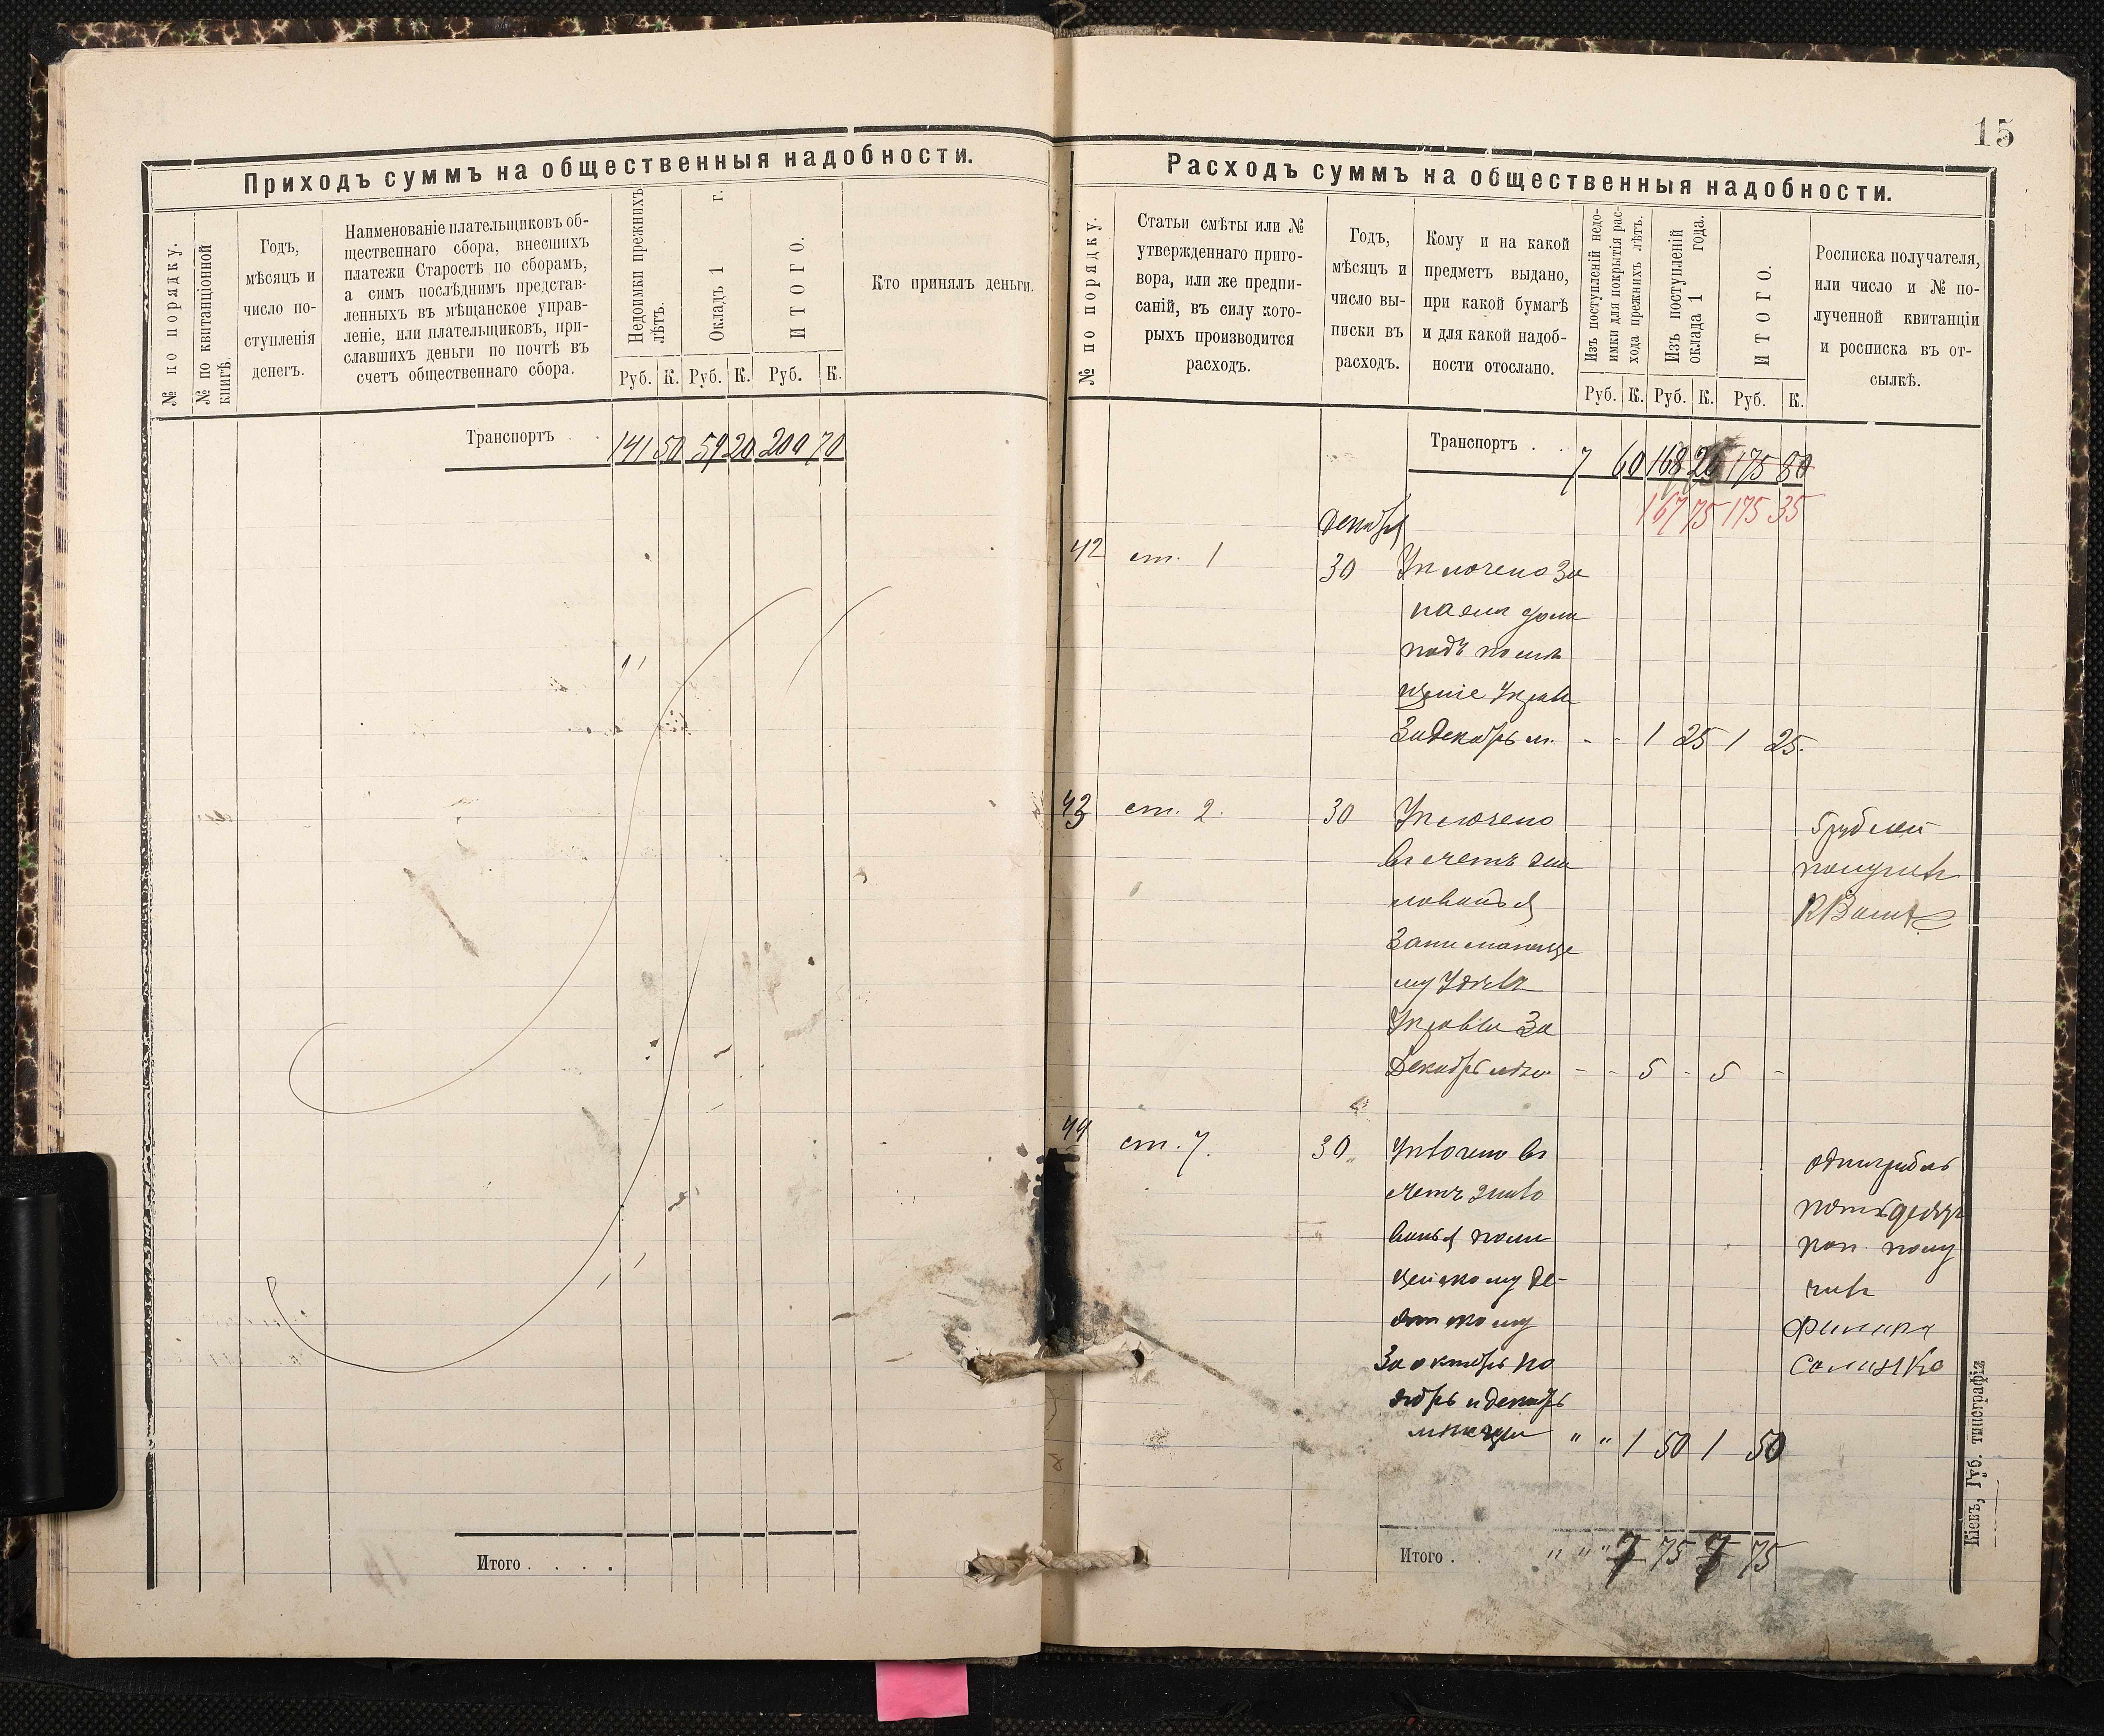 15
Приходъ суммъ на общественныя надобности.
№ по порядку.
№ по квитанціонной
книгѣ.
Годъ,
мѣсяцъ и
число по-
ступленія
денегъ.
Наименованіе плательщиковъ об-
щественнаго сбора, внесшихъ
платежи Старостѣ по сборамъ,
а симъ послѣднимъ представ-
ленныхъ въ мѣщанское управ-
леніе, или плательщиковъ, при-
славшихъ деньги по почтѣ въ
счетъ общественнаго сбора.
Недоимки прежнихъ
лѣтъ.
Окладъ 1 г.
ИТОГО.
Руб. К. Руб. К. Руб. К.
Кто принялъ деньги.
Транспортъ . . 141 50 59 20 200 70
Итого . . . .
Расходъ суммъ на общественныя надобности.
№ по порядку.
Статьи смѣты или №
утвержденнаго приго-
вора, или же предпи-
саній, въ силу кото-
рыхъ производится
расходъ.
Годъ,
мѣсяцъ и
число вы-
писки въ
расходъ.
Кому и на какой
предметъ выдано,
при какой бумагѣ
и для какой надоб-
ности отослано.
Изъ поступленій недо-
имки для покрытія рас-
хода прежнихъ лѣтъ.
Изъ поступленій
оклада 1 года.
ИТОГО.
Руб. К. Руб. К. Руб. К.
Росписка получателя,
или число и № по-
лученной квитанціи
и росписка въ от-
сылкѣ.
Транспортъ . . 7 60 168 20 175 80
167 75 175 35
декабря
42 ст. 1 30 Уплочено за
наемъ дома
подъ помѣ
щеніе Управы
За декабрь м. - - 1 25 1 25.
43 ст. 2. 30 Уплочено
въ счетъ жа
лованья
Занимающе
му
Управы За
Декабрь - - 5 - 5 -
5 рублей
получилъ
44 ст. 7. 30 Уплочено въ
счетъ жало
ванья поли
цейскому де-
сятскому
За октябрь но
ябрь и декабрь
мѣсяцы " " 1 50 1 50
одинъ рубль
пятьдесятъ
коп. полу
чилъ
Итого . . " " " 7 75 7 75
Кіевъ, Губ. типографія